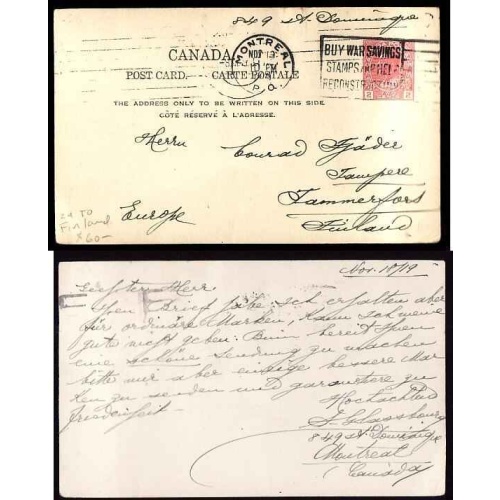 849 St Dominique
CANADA
POST CARD. CARTE POSTALE
MONTREAL
NOV 13
PM
P.Q.
BUY WAR SAVINGS
STAMPS HEL
RECONST
2 2
THE ADDRESS ONLY TO BE WRITTEN ON THIS SIDE
CÔTÉ RÉSERVÉ À L'ADRESSE.
Herrn Conrad Fjäder
Tampere
Tammerfors
Finland
Europe
2¢ TO
Finland
x60-
Nov. 10/19
Herr
Brief habe ich erhalten aber
für ordinäre Marken, kann ich meine
gute nicht geben. Bin bereit Ihnen
eine schöne Sendung zu machen
bitte mir aber einige bessere Mar
ken zu senden und garantiere zu
friedenheit-
Hochachtend
849 St Dominique
Montreal
(Canada)